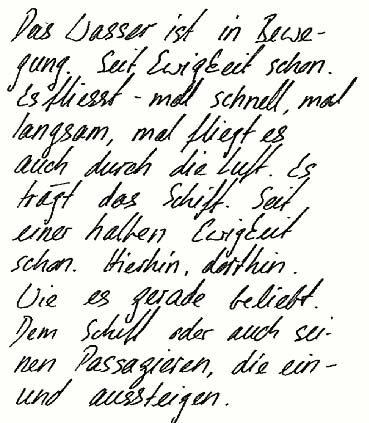 Das Wasser ist in Bewe-
gung. Seit Ewigkeit schon.
Es fliesst - mal schnell, mal
langsam, mal fliegt es
auch durch die Luft. Es
trägt das Schiff. Seit
einer halben Ewigkeit
schon. Hierhin, dorthin.
Wie es gerade beliebt.
Dem Schiff oder auch sei-
nen Passagieren, die ein-
und aussteigen.